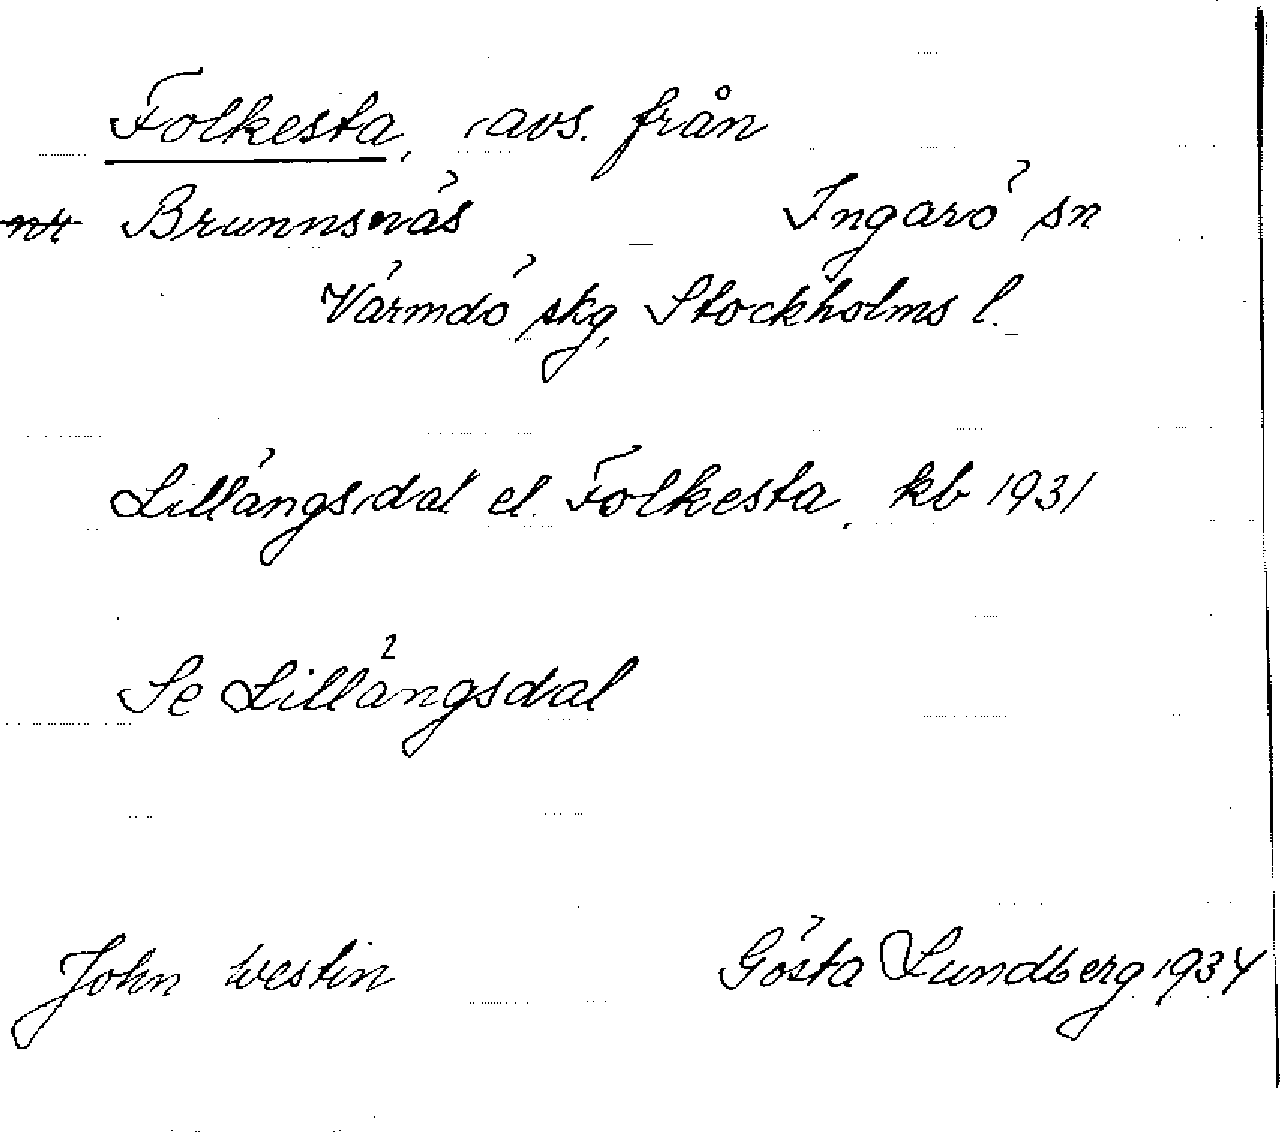 Folkesta, avs. från
Brunnsnäs Ingarö sn
Värmdö skg, Stockholms l.
Lillängsdal el. Folkesta, kb 1931
Se Lillängsdal
John Westin Gösta Lundberg 1934